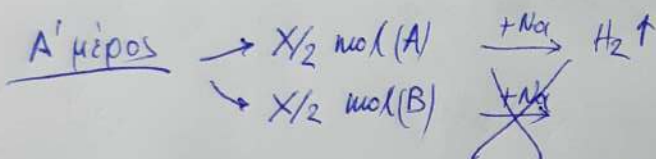 Α' μέρος → X/2 mol (A) +Na → H₂↑
↘ X/2 mol (B) +Na →